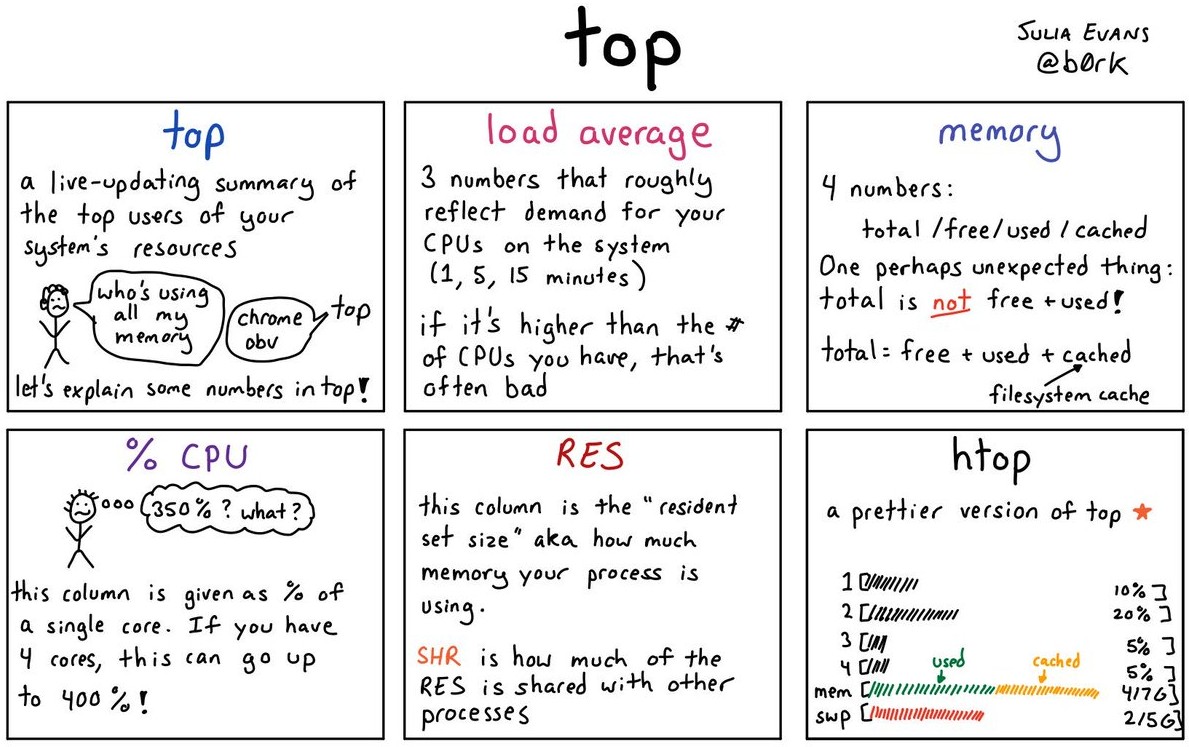 top
JULIA EVANS
@b0rk
top
a live-updating summary of
the top users of your
system's resources
who's using
all my
memory
chrome
obv
top
let's explain some numbers in top!
load average
3 numbers that roughly
reflect demand for your
CPUs on the system
(1, 5, 15 minutes)
if it's higher than the #
of CPUs you have, that's
often bad
memory
4 numbers:
total / free / used / cached
One perhaps unexpected thing:
total is not free + used!
total = free + used + cached
filesystem cache
% CPU
350% ? what?
this column is given as % of
a single core. If you have
4 cores, this can go up
to 400%!
RES
this column is the "resident
set size" aka how much
memory your process is
using.
SHR is how much of the
RES is shared with other
processes
htop
a prettier version of top ★
1 [ 10% ]
2 [ 20% ]
3 [ 5% ]
4 [ 5% ]
used cached
mem [ 4/7G ]
swp [ 2/5G ]